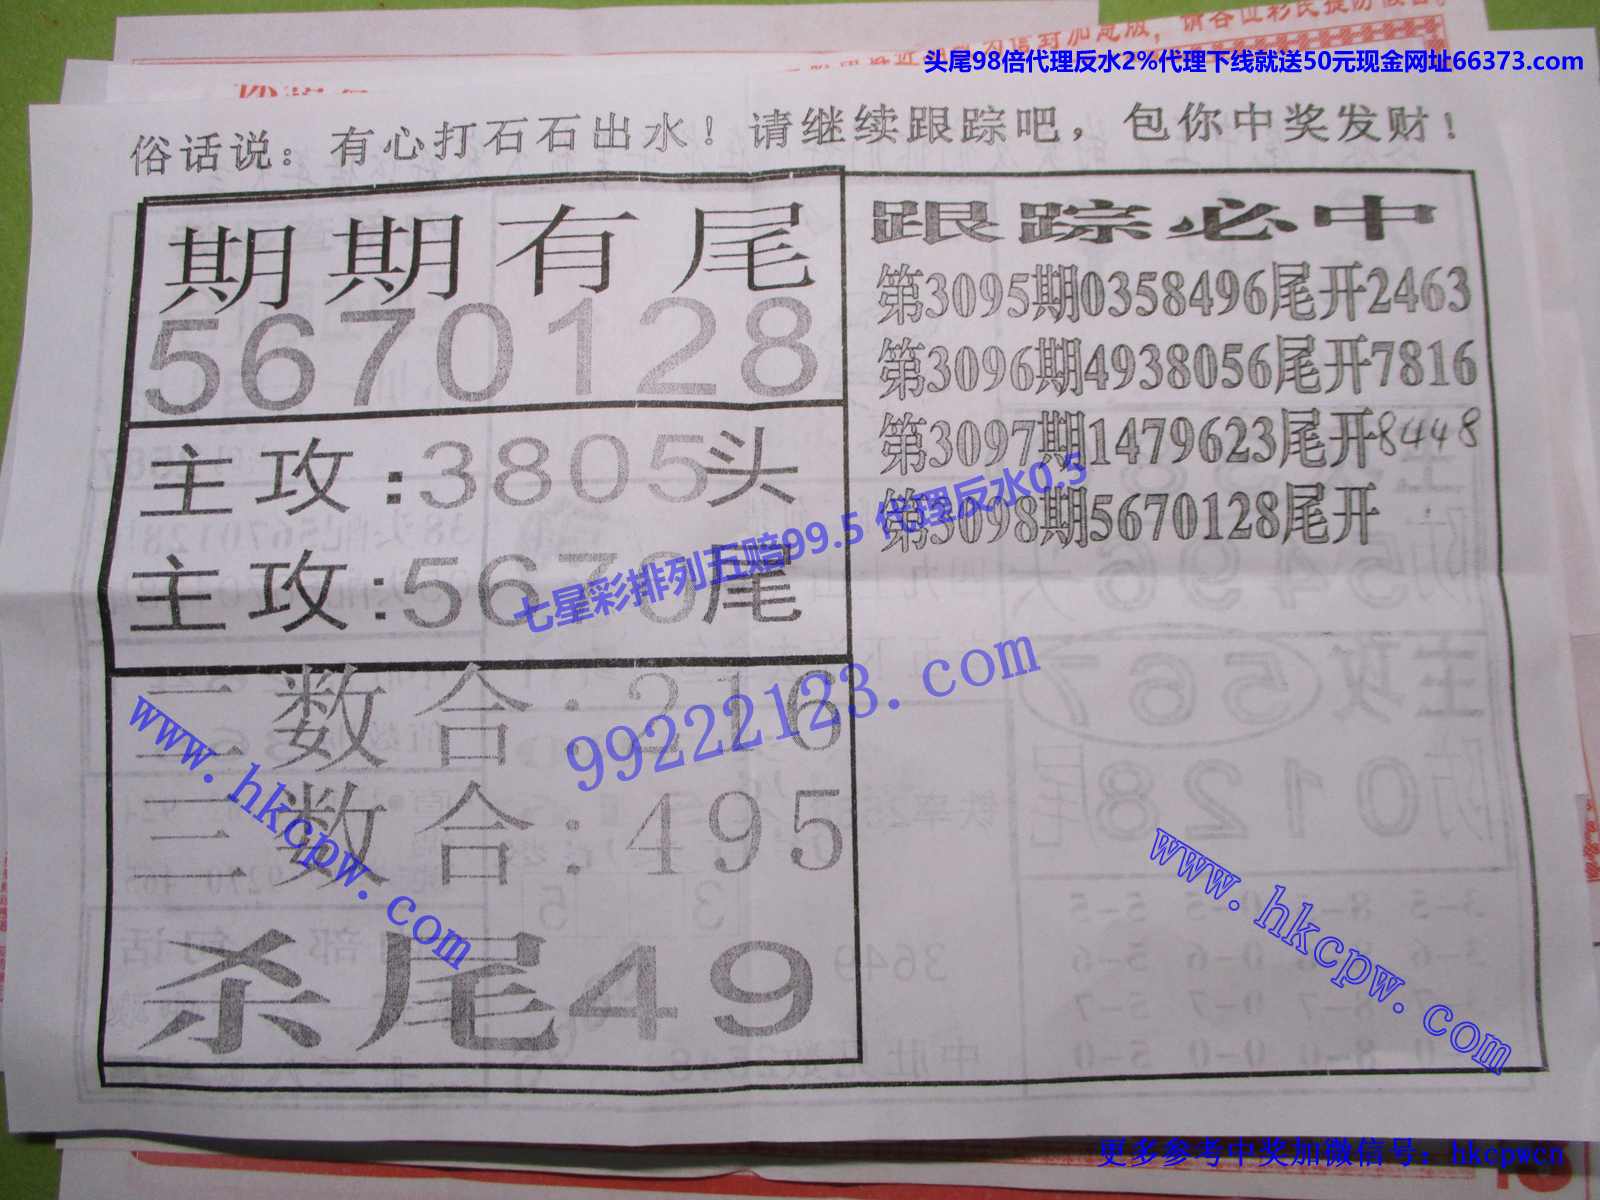 头尾98倍代理反水2%代理下线就送50元现金网址66373.com
俗话说：有心打石石出水！请继续跟踪吧，包你中奖发财！
期期有尾
5670128
主攻:3805头
主攻:5670尾
二数合:216
三数合:495
杀尾49
跟踪必中
第3095期0358496尾开2463
第3096期4938056尾开7816
第3097期1479623尾开8448
第3098期5670128尾开
七星彩排列五赔99.5 代理反水0.5
99222123.com
www.hkcpw.com
www.hkcpw.com
更多参考中奖加微信号：hkcpwcn